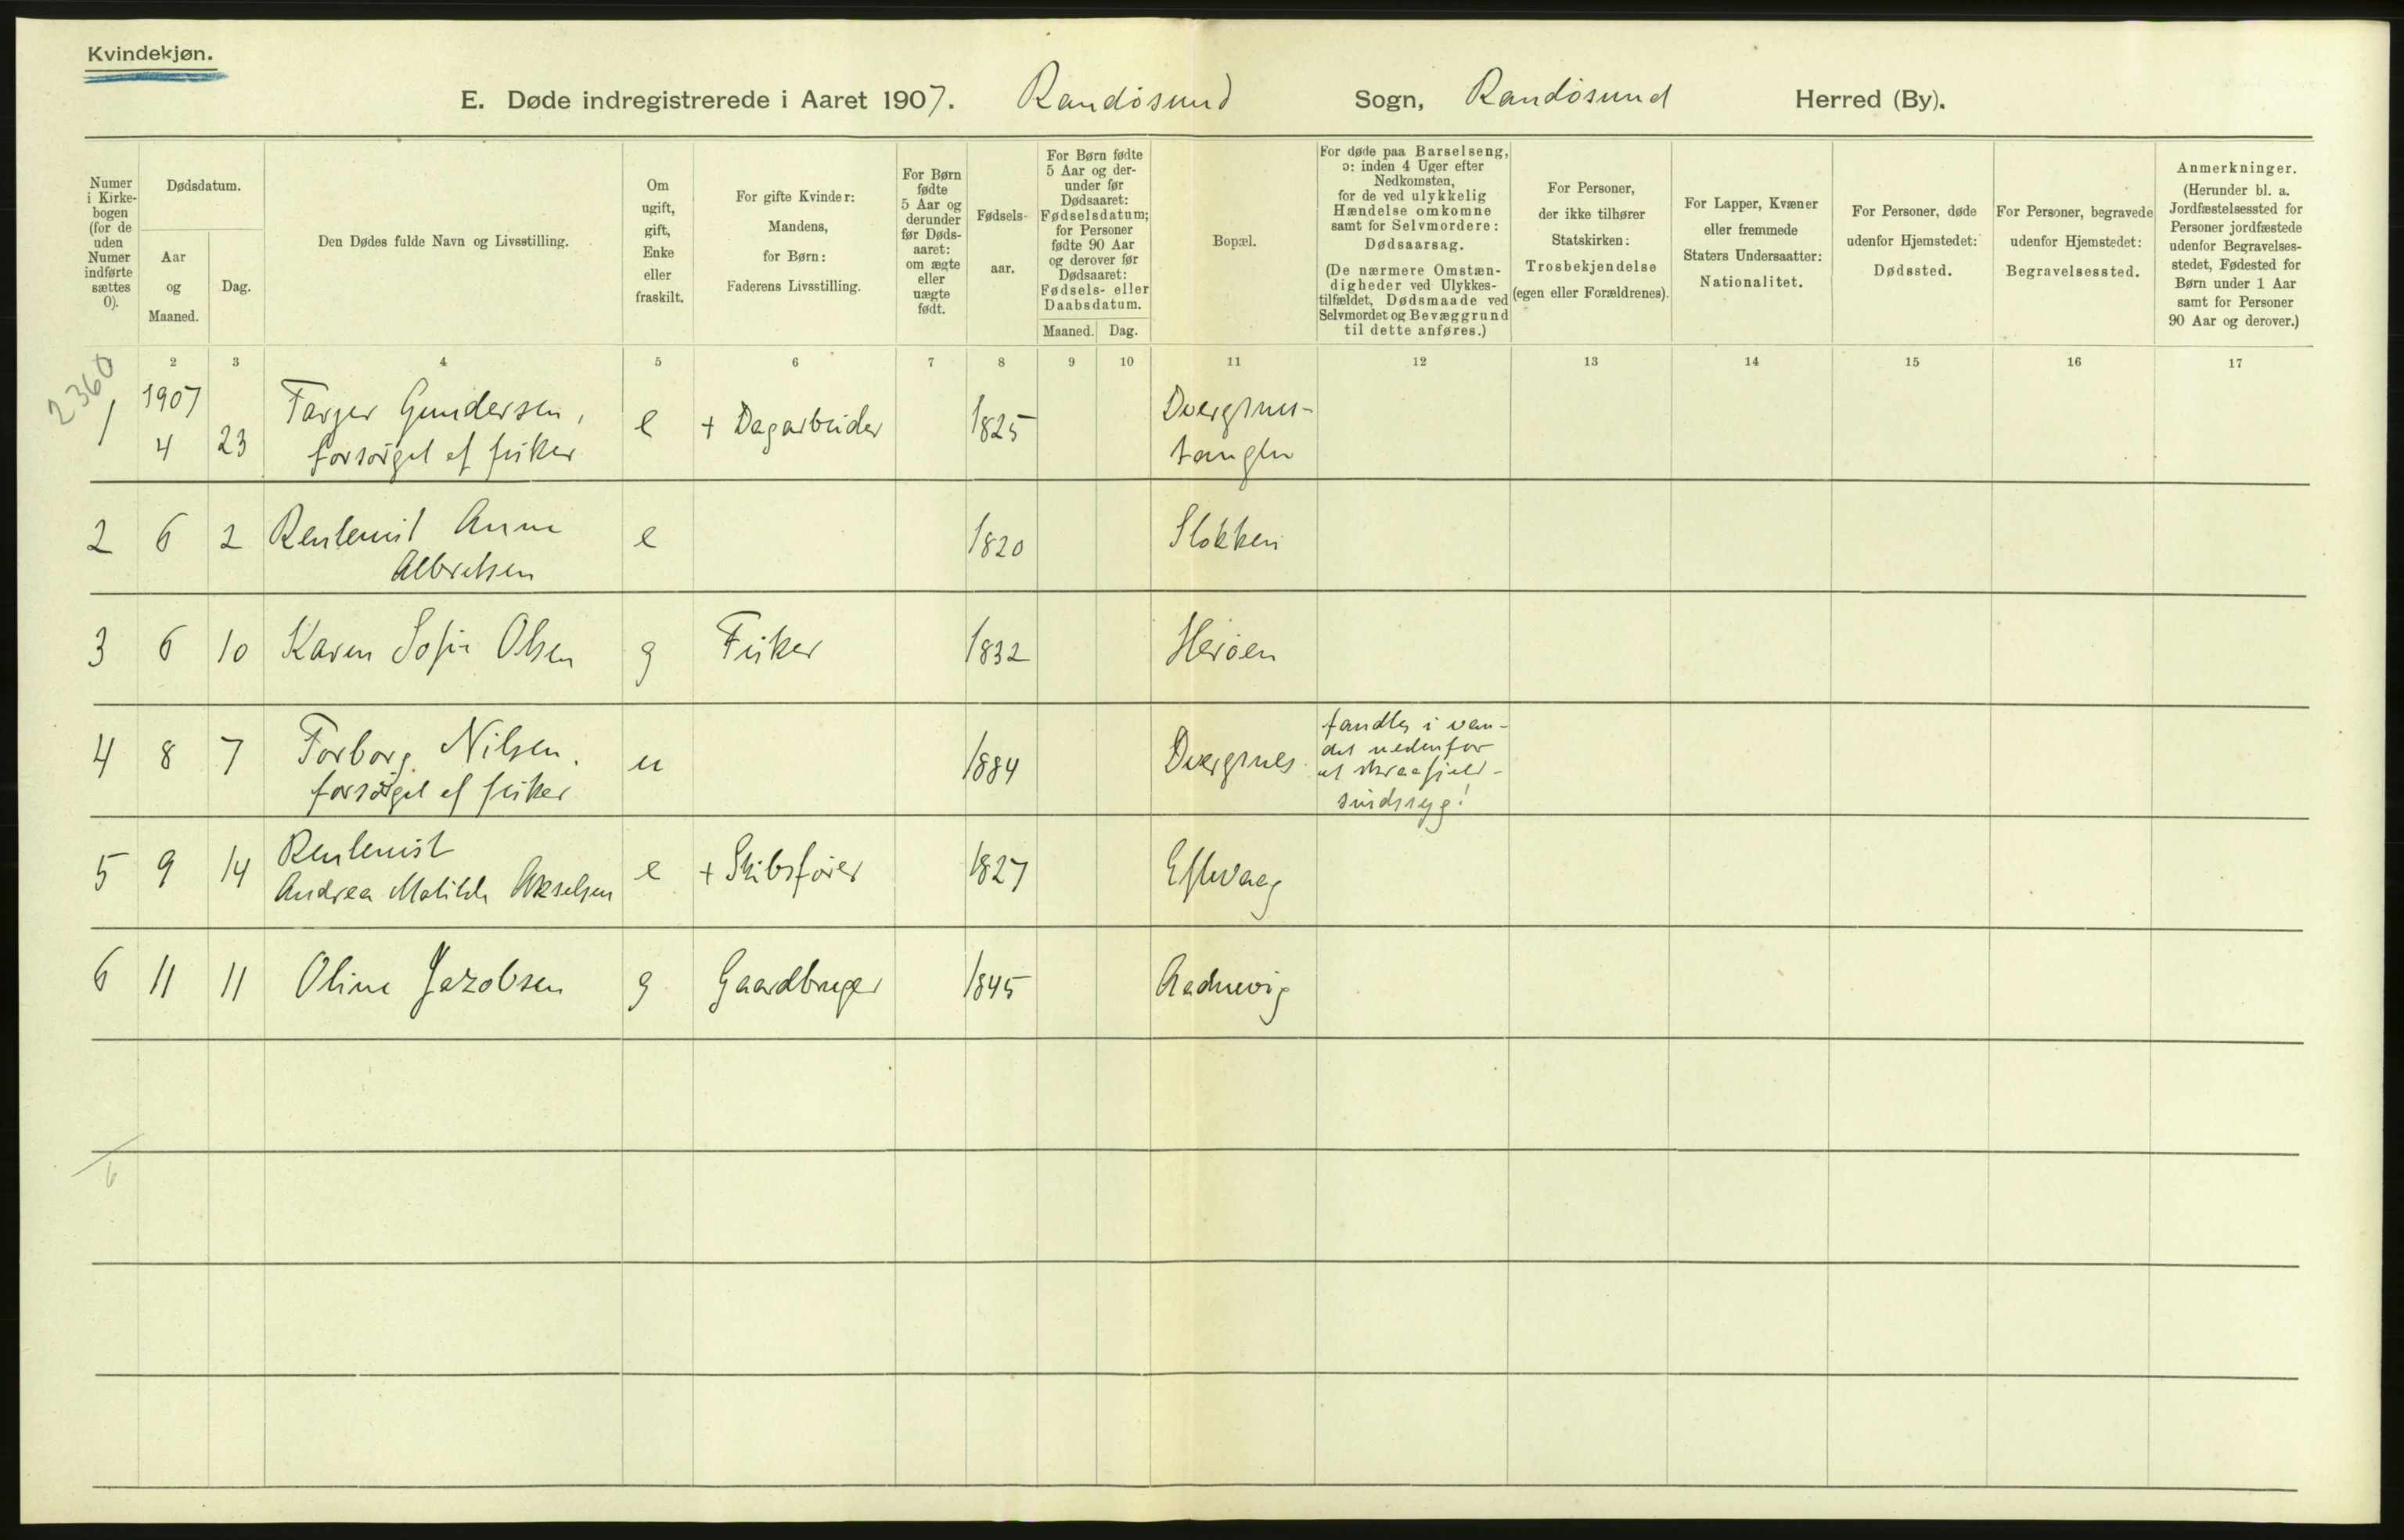 Kvindekjøn.
E. Døde indregistrerede i Aaret 1907. Randösund Sogn, Randösund Herred (By).
Numer i Kirke-bogen (for de uden Numer indførte sættes 0).
Dødsdatum.
Aar og Maaned.
Dag.
Den Dødes fulde Navn og Livsstilling.
Om ugift, gift, Enke eller fraskilt.
For gifte Kvinder: Mandens, for Børn: Faderens Livsstilling.
For Børn fødte 5 Aar og derunder før Døds-aaret: om ægte eller uægte født.
Fødsels-aar.
For Børn fødte 5 Aar og der-under før Dødsaaret: Fødselsdatum; for Personer fødte 90 Aar og derover før Dødsaaret: Fødsels- eller Daabsdatum.
Maaned. Dag.
Bopæl.
For døde paa Barselseng, ɔ: inden 4 Uger efter Nedkomsten, for de ved ulykkelig Hændelse omkomne samt for Selvmordere: Dødsaarsag. (De nærmere Omstæn-digheder ved Ulykkes-tilfældet, Dødsmaade ved Selvmordet og Bevæggrund til dette anføres.)
For Personer, der ikke tilhører Statskirken: Trosbekjendelse (egen eller Forældrenes).
For Lapper, Kvæner eller fremmede Staters Undersaatter: Nationalitet.
For Personer, døde udenfor Hjemstedet: Dødssted.
For Personer, begravede udenfor Hjemstedet: Begravelsessted.
Anmerkninger. (Herunder bl. a. Jordfæstelsessted for Personer jordfæstede udenfor Begravelses-stedet, Fødested for Børn under 1 Aar samt for Personer 90 Aar og derover.)
2 3 4 5 6 7 8 9 10 11 12 13 14 15 16 17
2360
1 1907 4 23 Tarjer Gundersen, forsörget af fisker e + Dagarbeider 1825 Dvergsnes-tangen
2 6 2 Rentenist Anne Albretsen e 1820 Stokken
3 6 10 Karen Sofie Olsen g Fisker 1832 Heröen
4 8 7 Torborg Nilsen. forsörget af fisker u 1884 Dvergsnes fandtes i van-det nedenfor et skraafjeld - sindssyg!
5 9 14 Rentenist Andrea Matilde Akselsen e + Skibsförer 1827 Eftevaag
6 11 11 Oline Jacobsen g Gaardbruger 1845
6